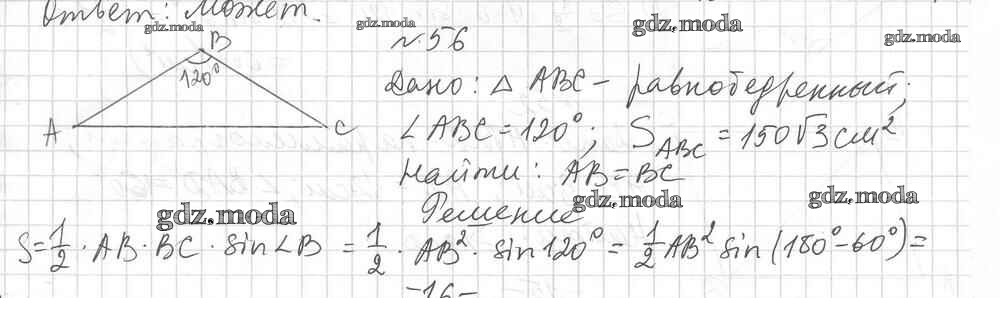 Ответ: Может.
gdz.moda gdz.moda gdz.moda gdz.moda
B
120°
A C
№56
Дано: △ ABC – равнобедренный;
∠ABC = 120°; S_ABC = 150√3 см²
Найти: AB = BC
gdz.moda gdz.moda gdz.moda
Решение
S = 1/2 · AB · BC · sin∠B = 1/2 · AB² · sin 120° = 1/2 AB² sin(180° – 60°) =
–16–